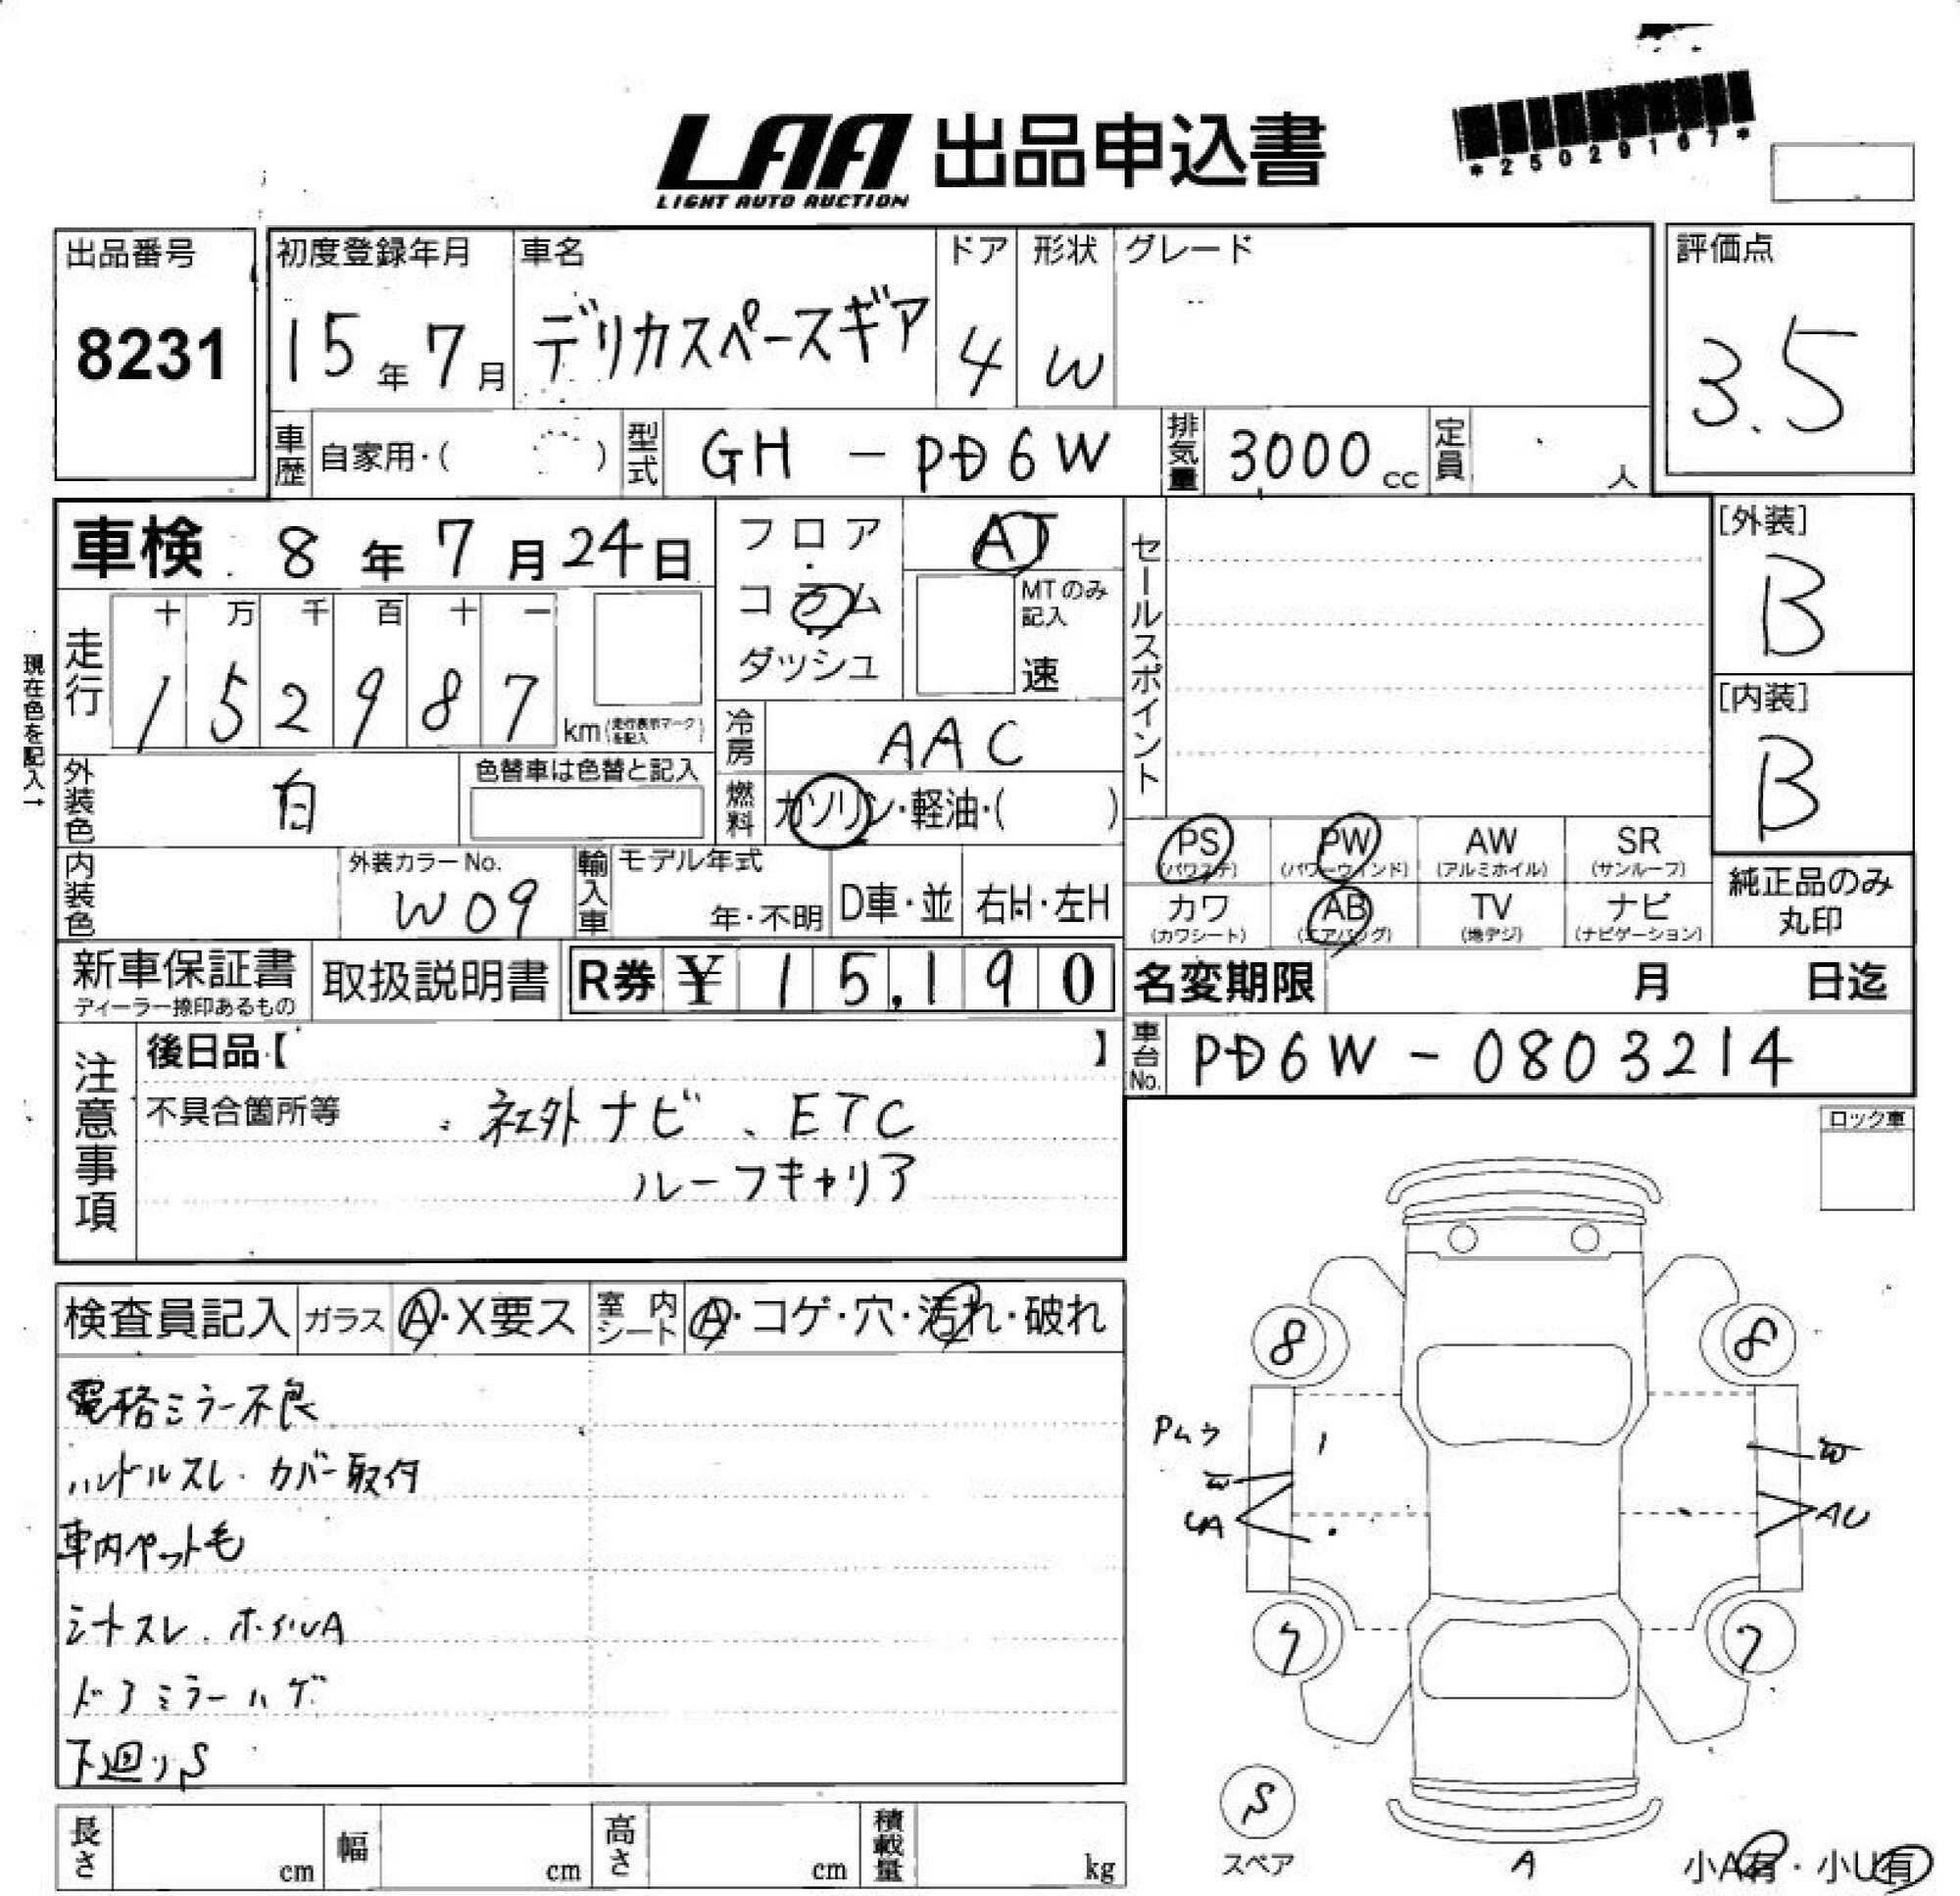 LAA 出品申込書
LIGHT AUTO AUCTION
*25029167*
出品番号
8231
初度登録年月
15年7月
車名
デリカスペースギア
ドア
4
形状
W
グレード
評価点
3.5
車歴 自家用・( )
型式 GH - PD6W
排気量 3000cc
定員 人
車検 8年7月24日
フロア・コラム・ダッシュ
AT
MTのみ記入
速
セールスポイント
[外装]
B
[内装]
B
現在色を記入→
走行
十 万 千 百 十 一
1 5 2 9 8 7 km(走行表示マークを記入)
冷房 AAC
外装色 白
色替車は色替と記入
燃料 ガソリン・軽油・( )
内装色
外装カラーNo.
W09
輸入車
モデル年式
年・不明
D車・並
右H・左H
PS
(パワステ)
PW
(パワーウインド)
AW
(アルミホイル)
SR
(サンルーフ)
カワ
(カワシート)
AB
(エアバッグ)
TV
(地デジ)
ナビ
(ナビゲーション)
純正品のみ
丸印
新車保証書
ディーラー捺印あるもの
取扱説明書
R券 ¥15,190
名変期限 月 日迄
車台No. PD6W - 0803214
注意事項
後日品【 】
不具合箇所等 ・社外ナビ、ETC
ルーフキャリア
ロック車
検査員記入
ガラス A・X要ス
室内シート A・コゲ・穴・汚れ・破れ
電格ミラー不良
ハンドルスレ・カバー取付
車内ペット毛
シートスレ・ホイルA
ドアミラーハゲ
下廻りS
8
8
W
W
UA
AU
7
7
S
スペア
A
小A有・小U有
長さ cm
幅 cm
高さ cm
積載量 kg